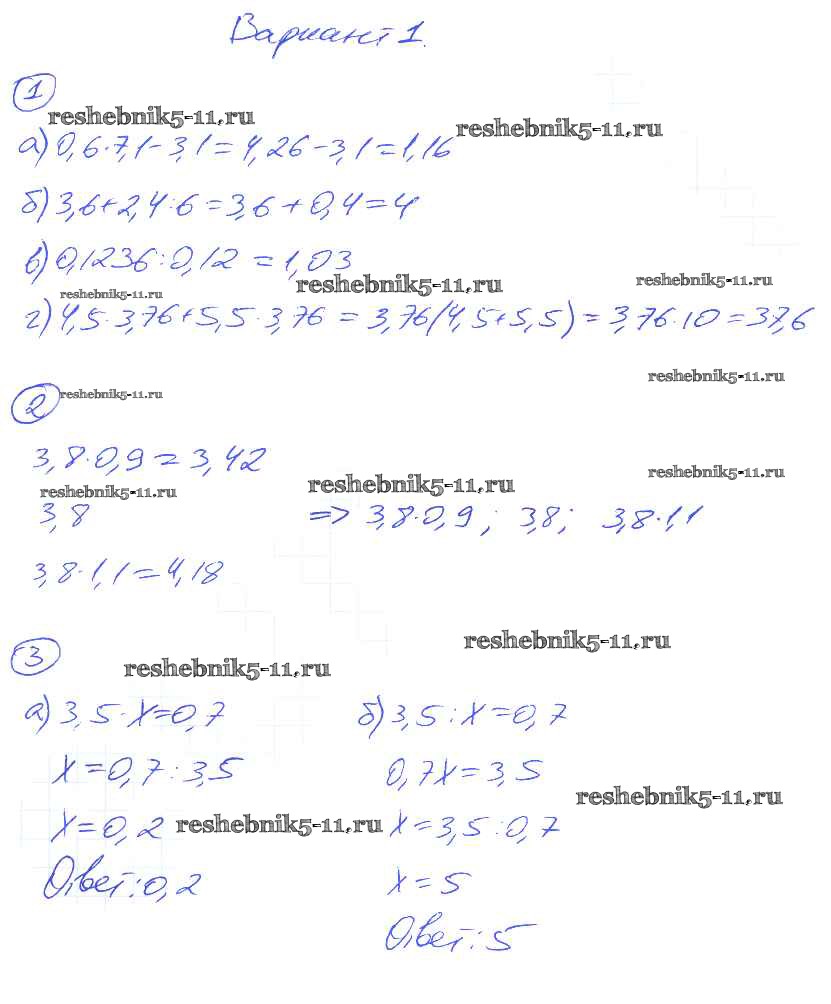 Вариант 1.
1
reshebnik5-11.ru
reshebnik5-11.ru
а) 0,6·7,1-3,1=4,26-3,1=1,16
б) 3,6+2,4:6=3,6+0,4=4
в) 0,1236:0,12=1,03
reshebnik5-11.ru
reshebnik5-11.ru
reshebnik5-11.ru
г) 4,5·3,76+5,5·3,76=3,76(4,5+5,5)=3,76·10=37,6
reshebnik5-11.ru
2
reshebnik5-11.ru
3,8·0,9=3,42
reshebnik5-11.ru
reshebnik5-11.ru
reshebnik5-11.ru
3,8 => 3,8·0,9; 3,8; 3,8·1,1
3,8·1,1=4,18
3
reshebnik5-11.ru
reshebnik5-11.ru
а) 3,5·x=0,7
x=0,7:3,5
x=0,2
reshebnik5-11.ru
Ответ: 0,2
б) 3,5:x=0,7
0,7x=3,5
reshebnik5-11.ru
x=3,5:0,7
x=5
Ответ: 5